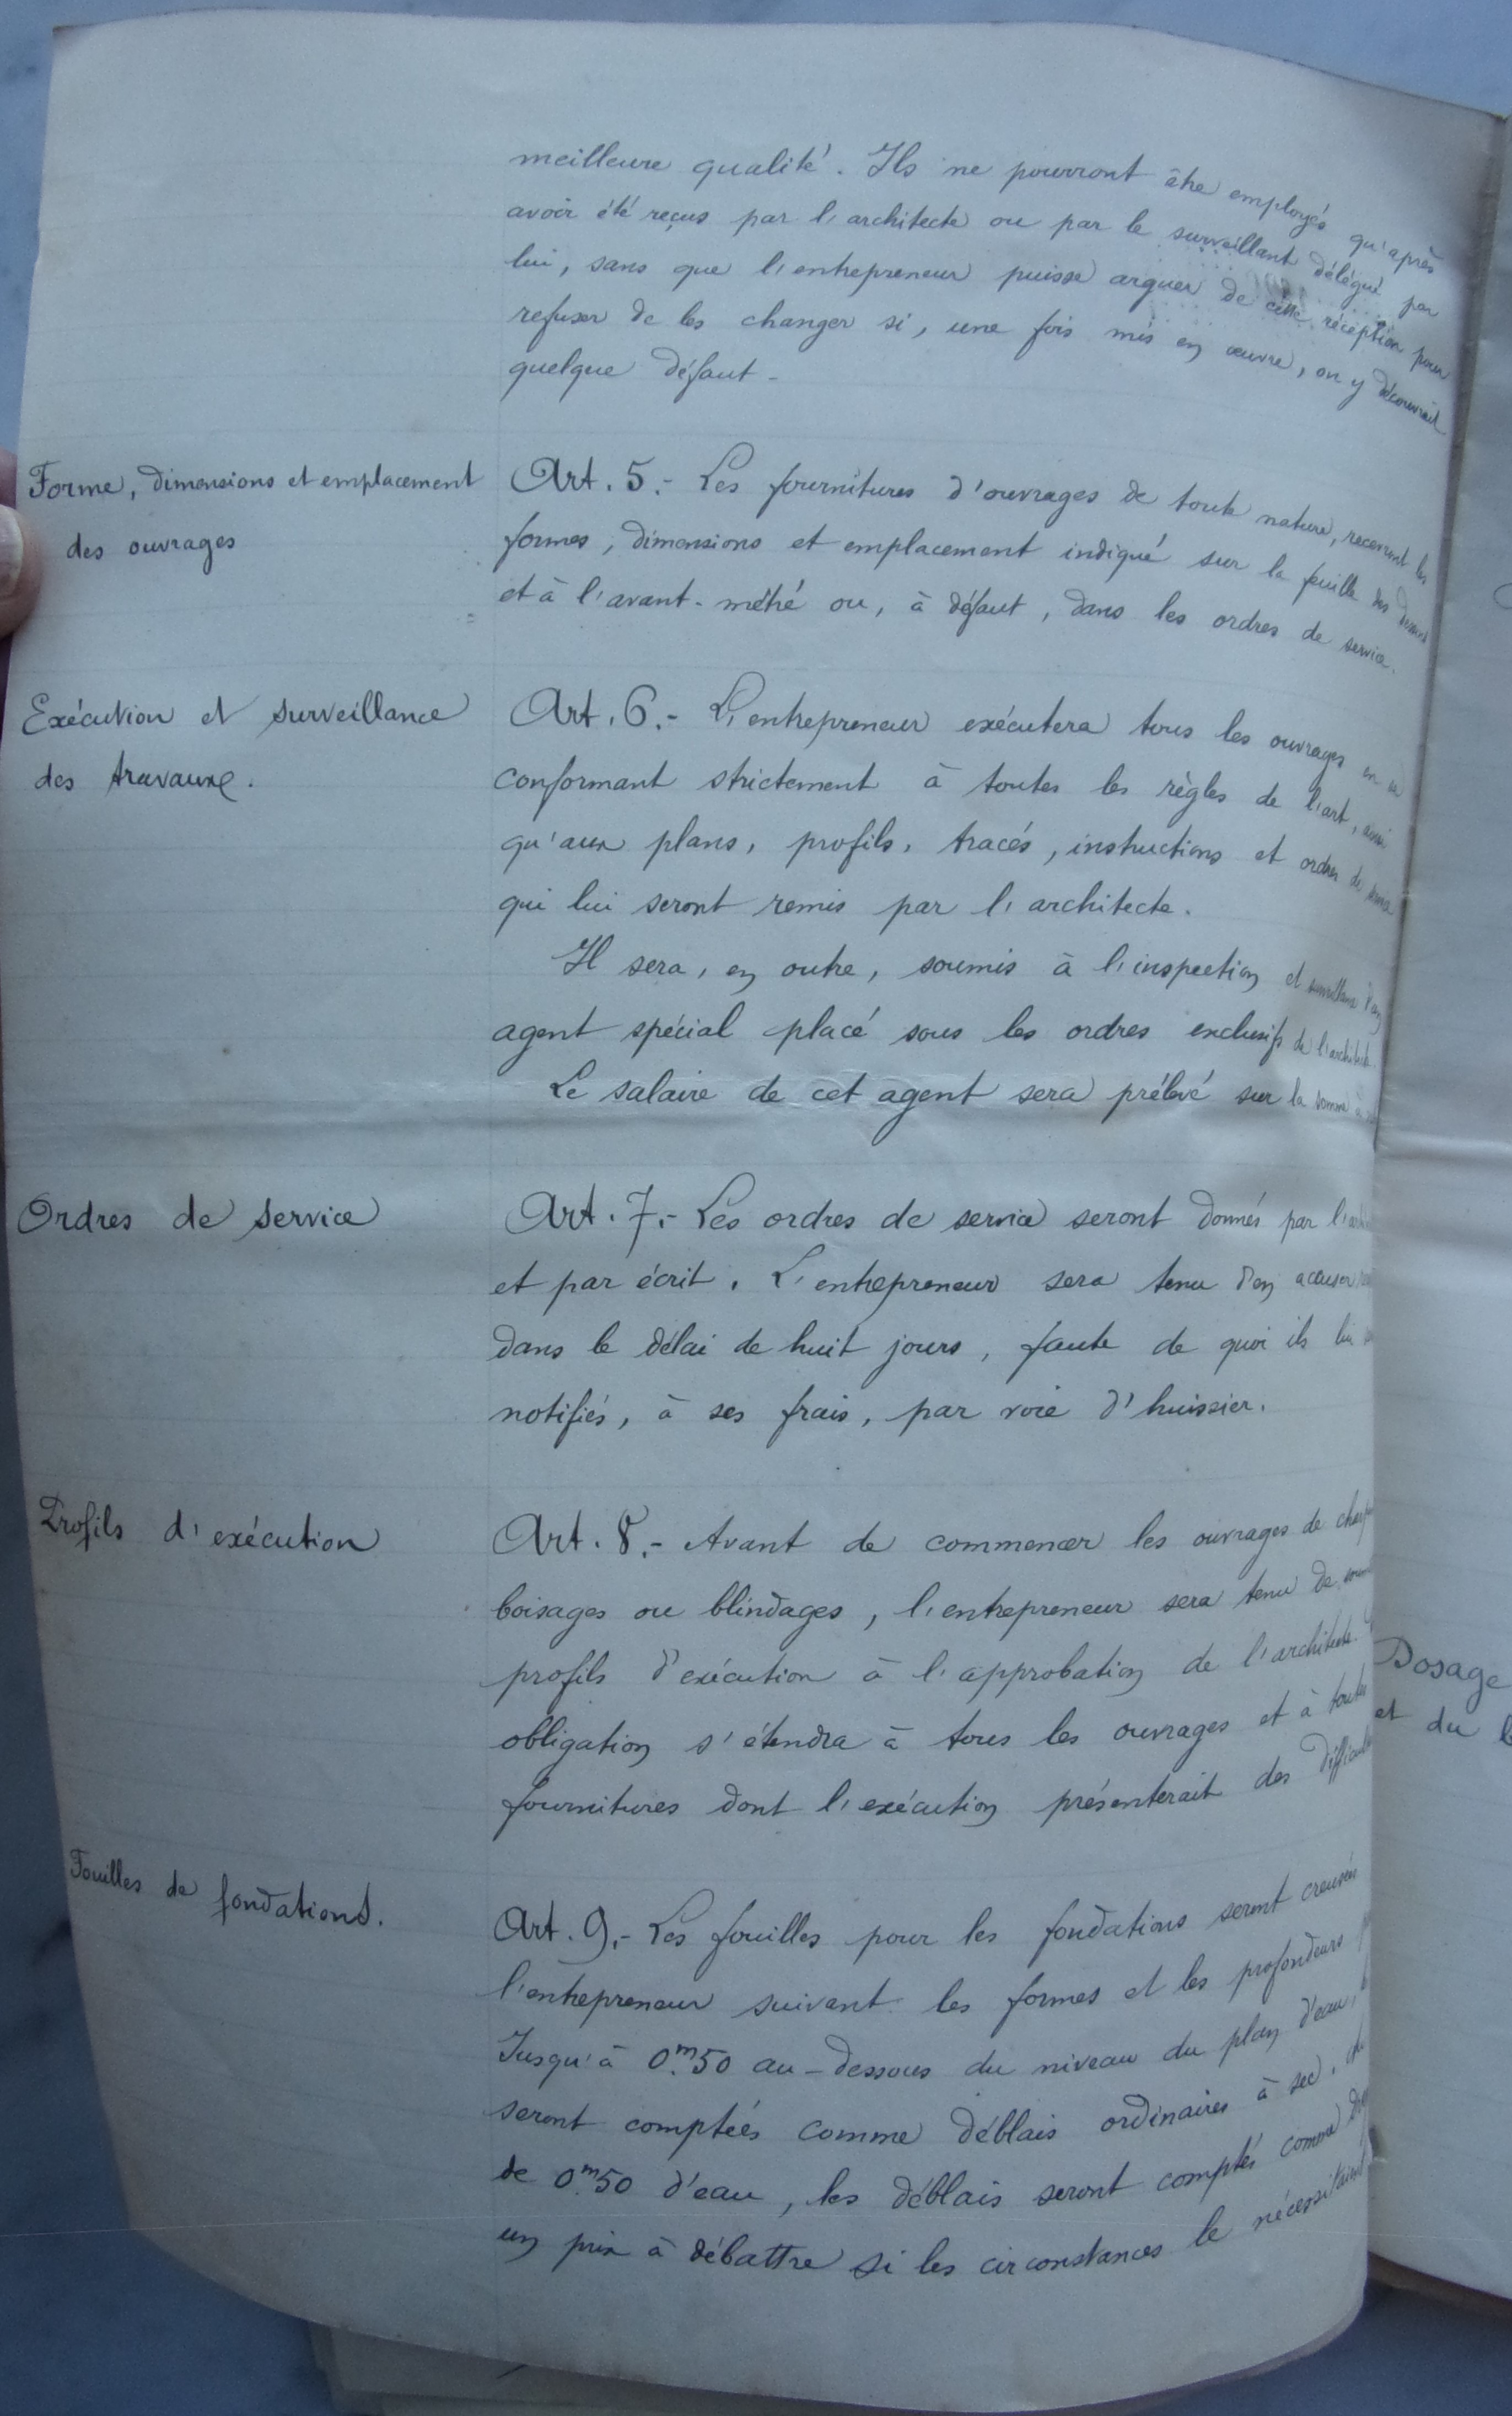 meilleure qualité. Ils ne pourront être employés qu'après
avoir été reçus par l'architecte ou par le surveillant délégué par
lui, sans que l'entrepreneur puisse arguer de cette réception pour
refuser de les changer si, une fois mis en œuvre, on y découvrait
quelque défaut.
Forme, dimensions et emplacement
des ouvrages
Art. 5.- Les fournitures d'ouvrages de toute nature, recevront les
formes, dimensions et emplacement indiqué sur la feuille des dessins
et à l'avant-métré ou, à défaut, dans les ordres de service.
Exécution et surveillance
des travaux.
Art. 6.- L'entrepreneur exécutera tous les ouvrages en se
conformant strictement à toutes les règles de l'art, ainsi
qu'aux plans, profils, tracés, instructions et ordres de
qui lui seront remis par l'architecte.
Il sera, en outre, soumis à l'inspection et surveillance d'un
agent spécial placé sous les ordres exclusifs de l'architecte
Le salaire de cet agent sera prélevé sur la somme à
Ordres de service
Art. 7.- Les ordres de service seront donnés par
et par écrit. L'entrepreneur sera tenu d'en accuser
dans le délai de huit jours, faute de quoi ils lui
notifiés, à ses frais, par voie d'huissier.
Profils d'exécution
Art. 8.- Avant de commencer les ouvrages de
boisages ou blindages, l'entrepreneur sera tenu de
profils d'exécution à l'approbation de l'architecte.
obligation s'étendra à tous les ouvrages et à toutes
fournitures dont l'exécution présenterait des
Fouilles de fondations.
Art. 9.- Les fouilles pour les fondations seront creusées
l'entrepreneur suivant les formes et les profondeurs
Jusqu'à 0.m50 au-dessous du niveau du plan d'eau,
seront comptées comme déblais ordinaires à sec.
de 0.m50 d'eau, les déblais seront comptés comme
un prix à débattre si les circonstances le nécessitaient
Dosage
et du